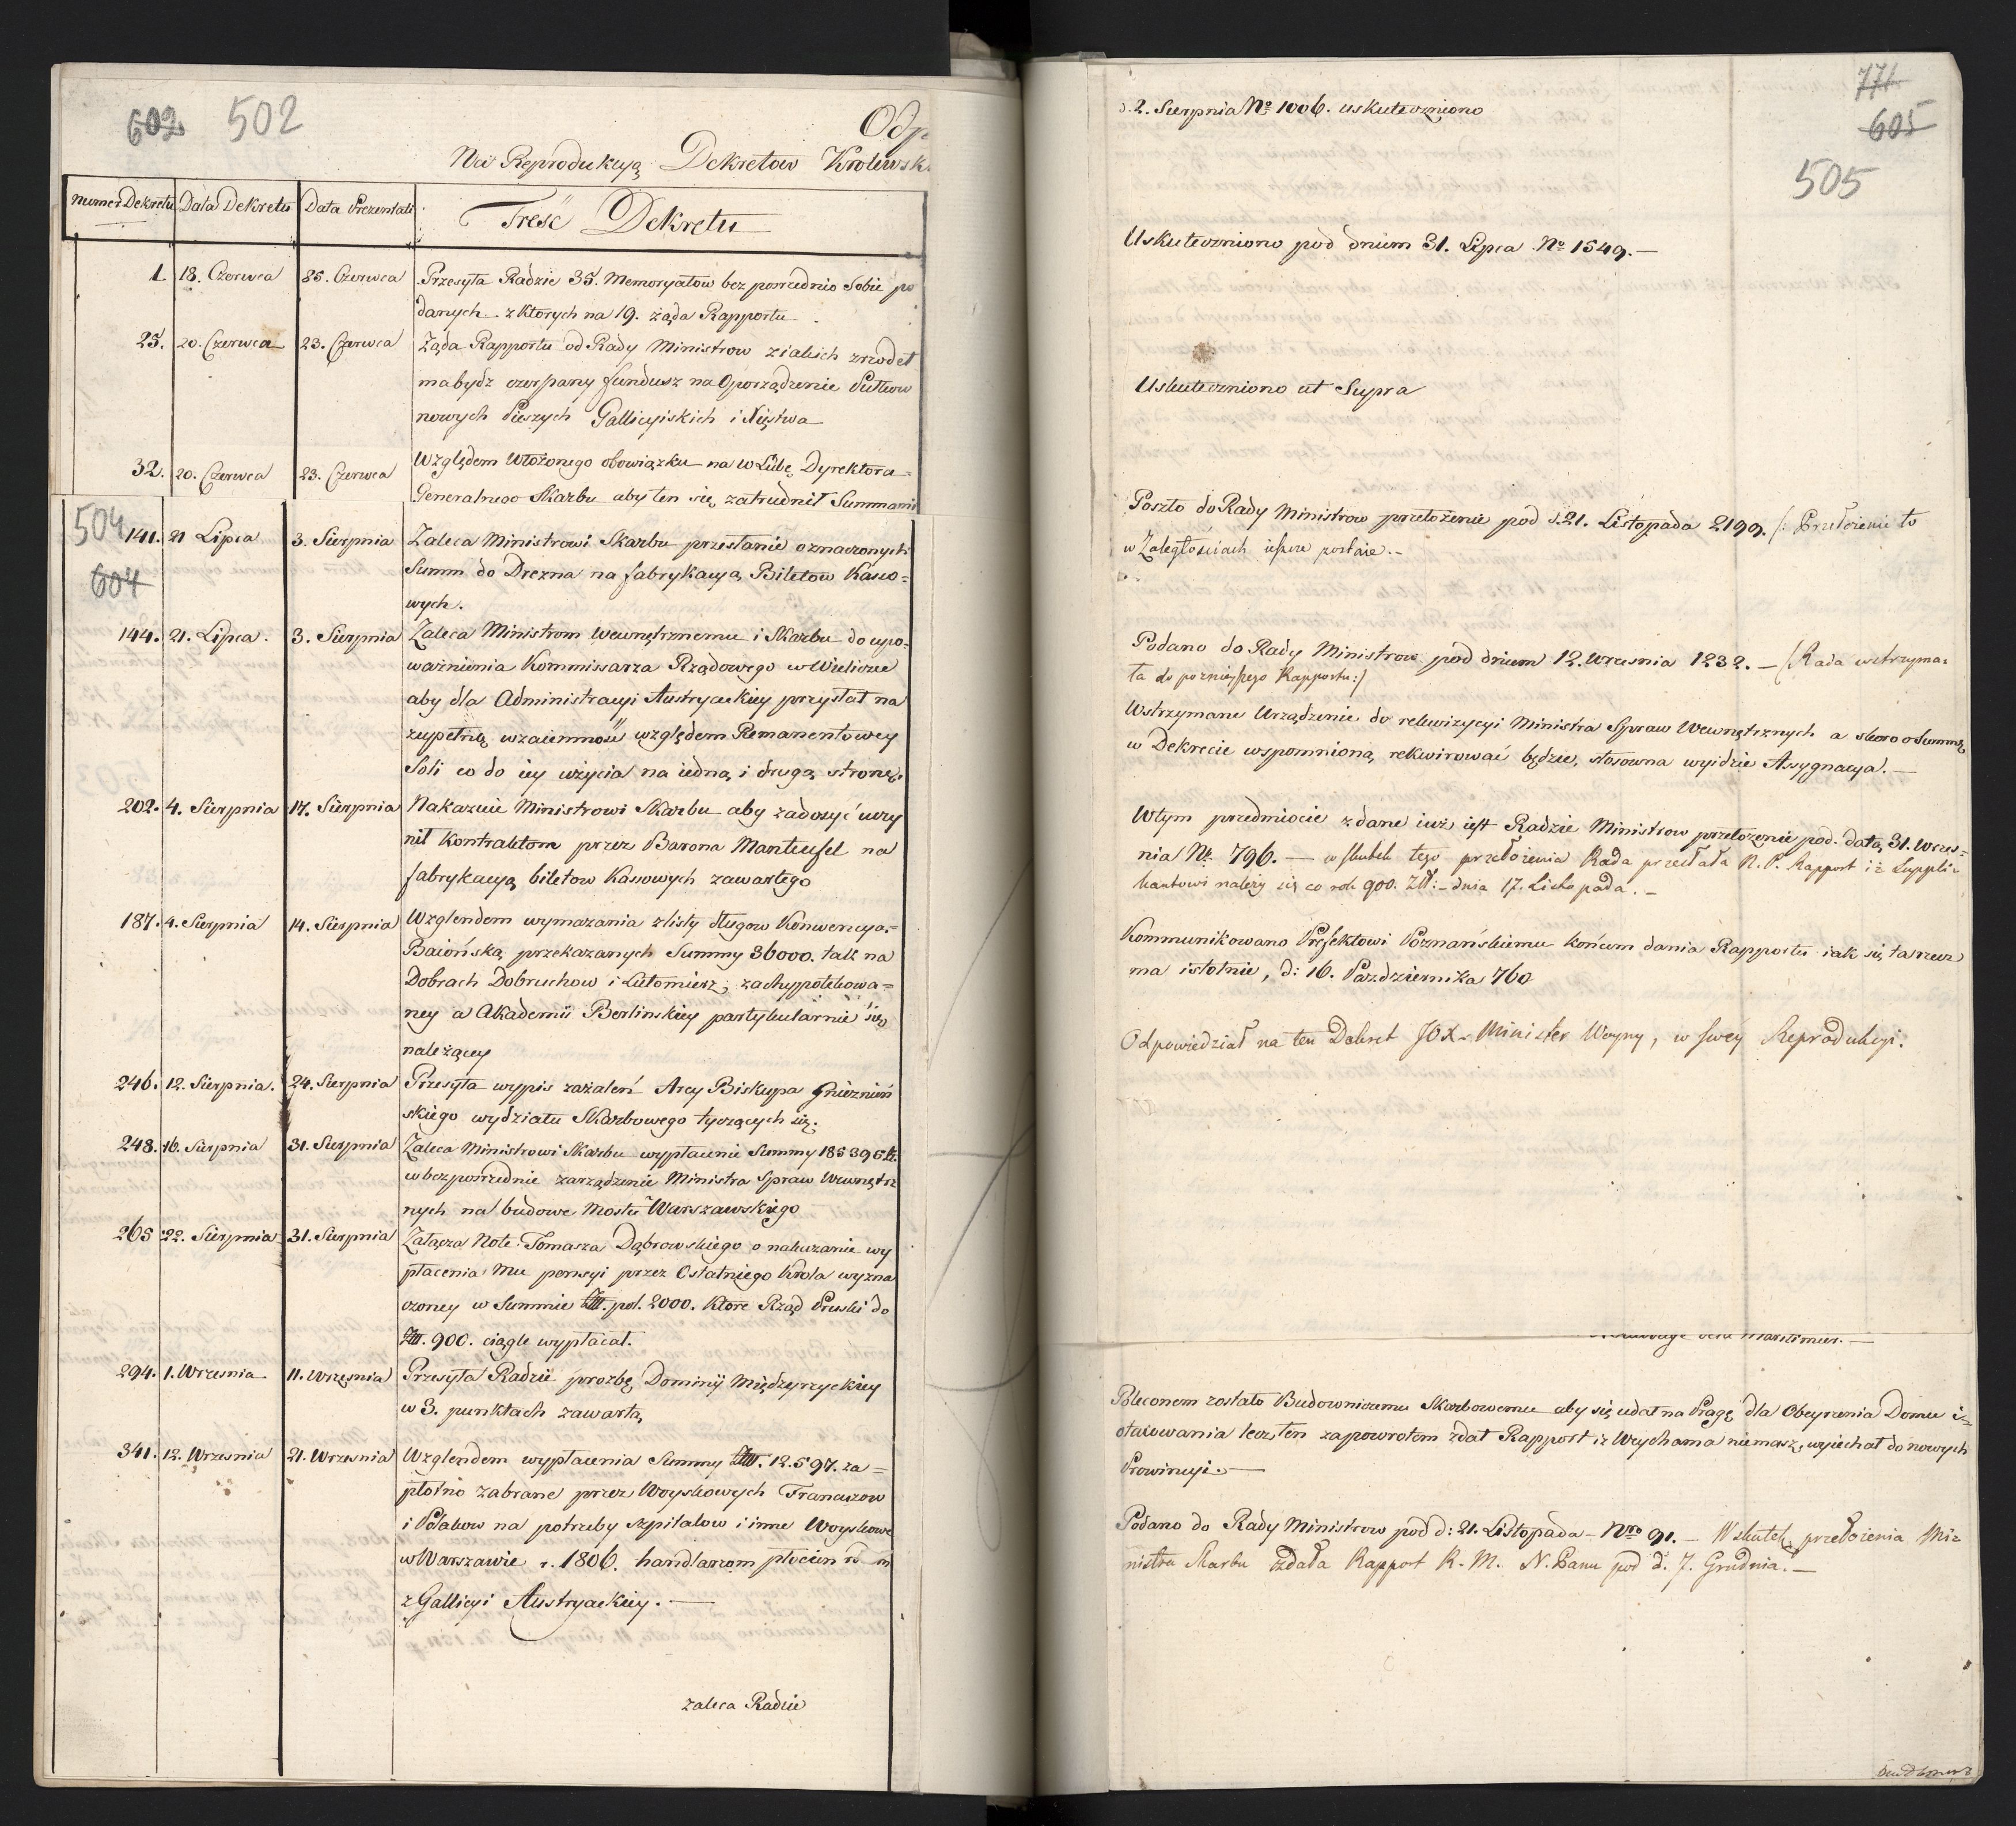 602 502
Odp
Na Reprodukcyą Dekretow Krolewsk
Numer Dekretu Data Dekretu Data Prezentati Treść Dekretu
1. 18. Czerwca 25. Czerwca Przesyła Radzie 35. Memoryałow bez posrzednio Sobie po
danych z ktorych na 19. żąda Rapportu
25. 20. Czerwca 23. Czerwca Ząda Rapportu od Rady Ministrow z iakich zrzodeł
ma bydz czerpany fundusz na Oporządzenie Pułkow
nowych Pieszych Gallicyiskich i Xięstwa
32. 20. Czerwca 23. Czerwca Względem włożonego obowiązku na w Lubę Dyrektora
Generalnego Skarbu aby ten się zatrudnił Summami
504 141. 21 Lipca 3. Sierpnia Zaleca Ministrowi Skarbu przesłanie oznaczonych
604 Summ do Drezna na fabrykacyą Biletow Kasso=
wych.
144. 21. Lipca. 3. Sierpnia Zaleca Ministrom Wewnętrznemu i Skarbu do upo=
ważnienia Kommissarza Rządowego w Wieliczce
aby dla Administracyi Austryackiey przystał na
zupełną wzaiemność względem Remanentowey
Soli co do iey użycia na iedną i drugą stronę.
202. 4. Sierpnia 17. Sierpnia Nakazuie Ministrowi Skarbu aby zadosyć uczy
nił Kontraktom przez Barona Manteufel na
fabrykacyą biletow Kassowych zawartego
187. 4. Sierpnia 14. Sierpnia Wzglendem wymazania z listy długow Konwencyą=
Baiońską przekazanych Summy 36000. tall na
Dobrach Dobruchow i Lutomiersz; zachypotekowa=
ney a Akademii Berlinskiey partykularnie się
należącey
246. 12. Sierpnia. 24. Sierpnia Przesyła wypis zażaleń Arcy Biskupa Gniezniń
skiego wydziału Skarbowego tyczących się.
248. 16. Sierpnia 31. Sierpnia Zaleca Ministrowi Skarbu wypłacenie Summy 185395
w bezposrzednie zarządzenie Ministra Spraw Wewnętrz
nych na budowe Mostu Warszawskiego
265 22. Sierpnia 31. Sierpnia Załącza Note Tomasza Dąbrowskiego o nakazanie wy
płacenia Mu pensyi przez Ostatniego Krola wyzna
czoney w Summie Złł. pol. 2000. Ktore Rząd Pruski do
Złł. 900. ciągle wypłacał.
294. 1. Wrzesnia 11. Wrzesnia Przesyła Radzie prozbę Dominii Międzyrzyckiey
w 3. punktach zawartą
341. 12. Wrzesnia 21. Wrzesnia Wzglendem wypłacenia Summy Złł. 12.597. za=
płotno zabrane przez Woyskowych Francuzow
i Polakow na potrzeby szpitalow i inne Woyskowe
w Warszawie r. 1806. handlarzom płocien
z Gallicyi Austryackiey. —
zaleca Radzie
771
605
505
d. 2. Sierpnia No 1006. uskuteczniono
Uskuteczniono pod dniem 31. Lipca No 1549. —
Uskuteczniono ut Supra
Poszło do Rady Ministrow przełożenie pod d. 21. Listopada 2199. /: Przełożenie to
w Zaległościach ieszcze zostaie. —
Podano do Rady Ministrow pod dniem 12. Wrzesnia 1232. — /Rada wstrzyma=
ła do poznieyszego Rapportu:/
Wstrzymane Urządzenie do rekwizycyi Ministra Spraw Wewnętrznych a skoro o Summę
w Dekrecie wspomnioną rekwirować będzie, stosowna wyidzie Assygnacya. —
W tym przedmiocie zdane iuż iest Radzie Ministrow przełożenie pod datą 31. Wrzes=
nia No 796. — w skutek tego przełożenia Rada przesłała N. P. Rapport iż Suppli=
kantowi należy się co rok 900. Złł: — dnia 17. Listopada. —
Kommunikowano Prefektowi Poznańskiemu końcem dania Rapportu iak się ta rzecz
ma istotnie, d: 16. Pazdziernika 760
Odpowiedział na ten Dekret JOX. Minister Woyny, w swey Reprodukcyi.
Poleconem zostało Budowniczemu Skarbowemu aby się udał na Pragę dla Obeyrzenia Domu i=
otaxowania lecz ten zapowrotem zdał Rapport iż Weychana niemasz, wyiechał do nowych
Prowincyi. —
Podano do Rady Ministrow pod d: 21. Listopada — Nro 91. — W skutek przełożenia Mi=
nistra Skarbu zdała Rapport R. M. N. Panu pod d. 7. Grudnia. —